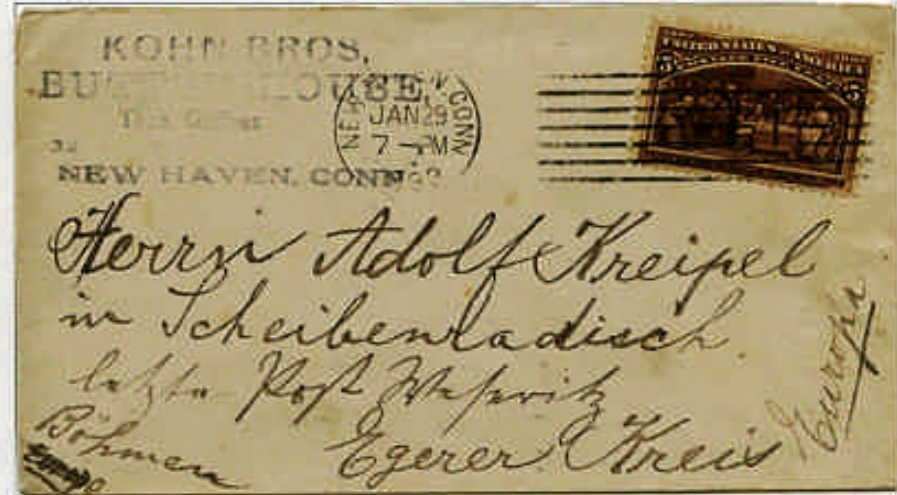 KOHN BROS.
HOUSE,
NEW HAVEN, CONN
NEW CONN
JAN 29
7 - PM
UNITED STATES OF AMERICA
5 5
Herrn Adolf Kreipel
in Scheibenradisch
letzte Post Weseritz
Egerer Kreis
Böhmen
Europa